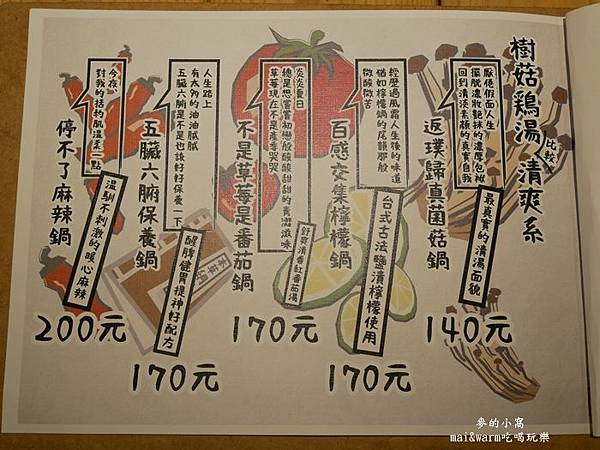 樹菇鷄湯 比較 清爽系
厭倦假面人生
擺脫濃妝艷抹的濃厚包袱
回到清淡素顏的真實自我
返璞歸真菌菇鍋
最真實的清湯面貌
140元
經歷過風霜人生後的味道
猶如檸檬鍋的尾韻那般
微酸微苦
百感交集檸檬鍋
台式古法鹽漬檸檬使用
170元
炎炎夏日
總是想嘗嘗初戀般酸酸甜甜的青澀滋味
草莓現在不是產季哭哭
不是草莓是番茄鍋
舒爽清香紅番茄湯
170元
人生路上
有太多的油油膩膩
五臟六腑是不是也該好好保養一下
五臟六腑保養鍋
醒脾健胃提神好配方
170元
今夜
對我的括約肌溫柔一點
停不了麻辣鍋
溫馴不刺激的暖心麻辣
200元
麥的小窩
mai&warm吃喝玩樂